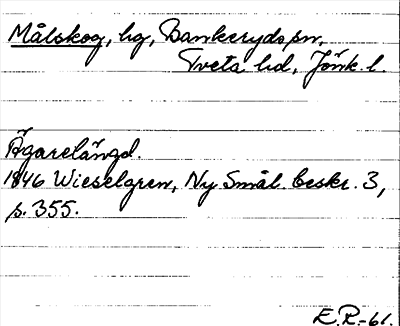 Målskog, hg, Bankeryds sn,
Tveta hd, Jönk. l.
Ägarelängd.
1846 Wieselgren, Ny Smål. beskr. 3,
s. 355.
E.R.-61.